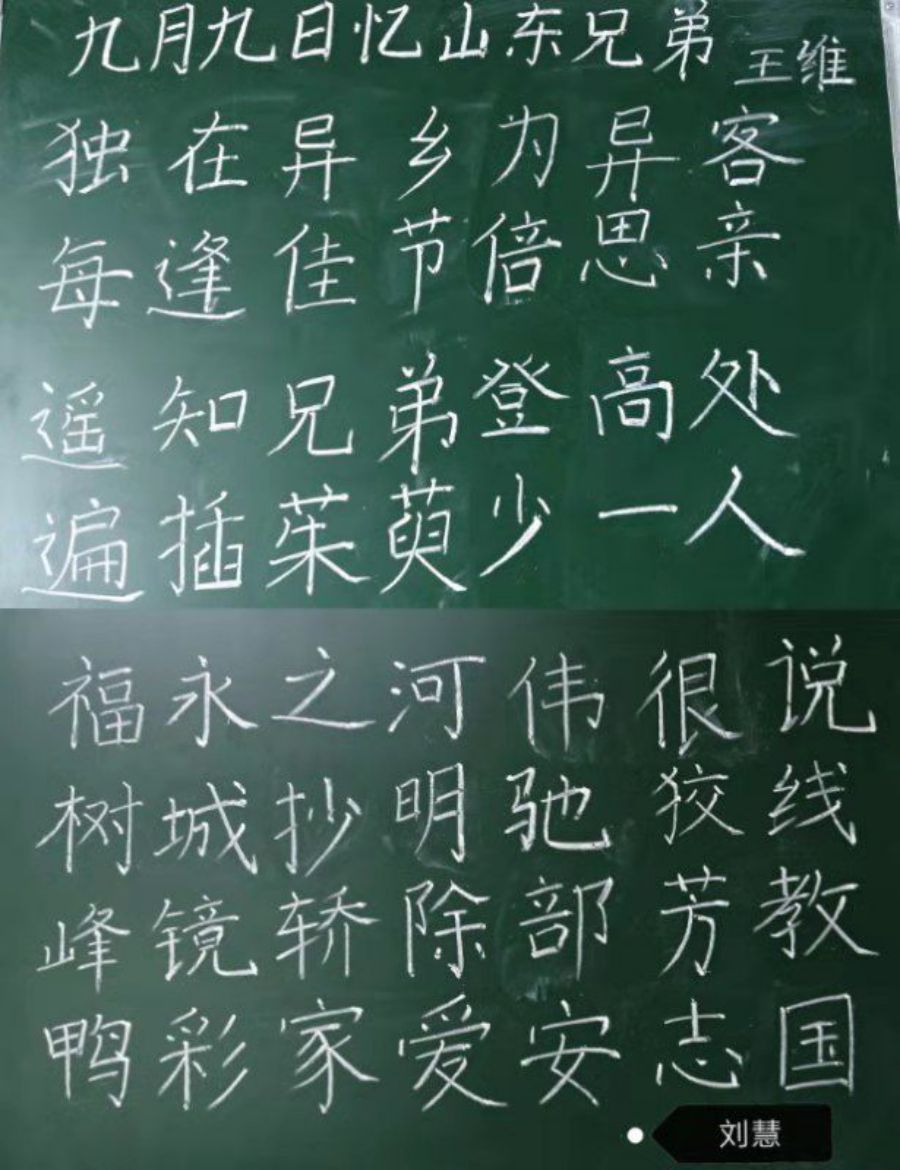 九月九日忆山东兄弟 王维
独在异乡为异客
每逢佳节倍思亲
遥知兄弟登高处
遍插茱萸少一人
福永之河伟很说
树城抄明驰狡线
峰镜轿除部芳教
鸭彩家爱安志国
刘慧